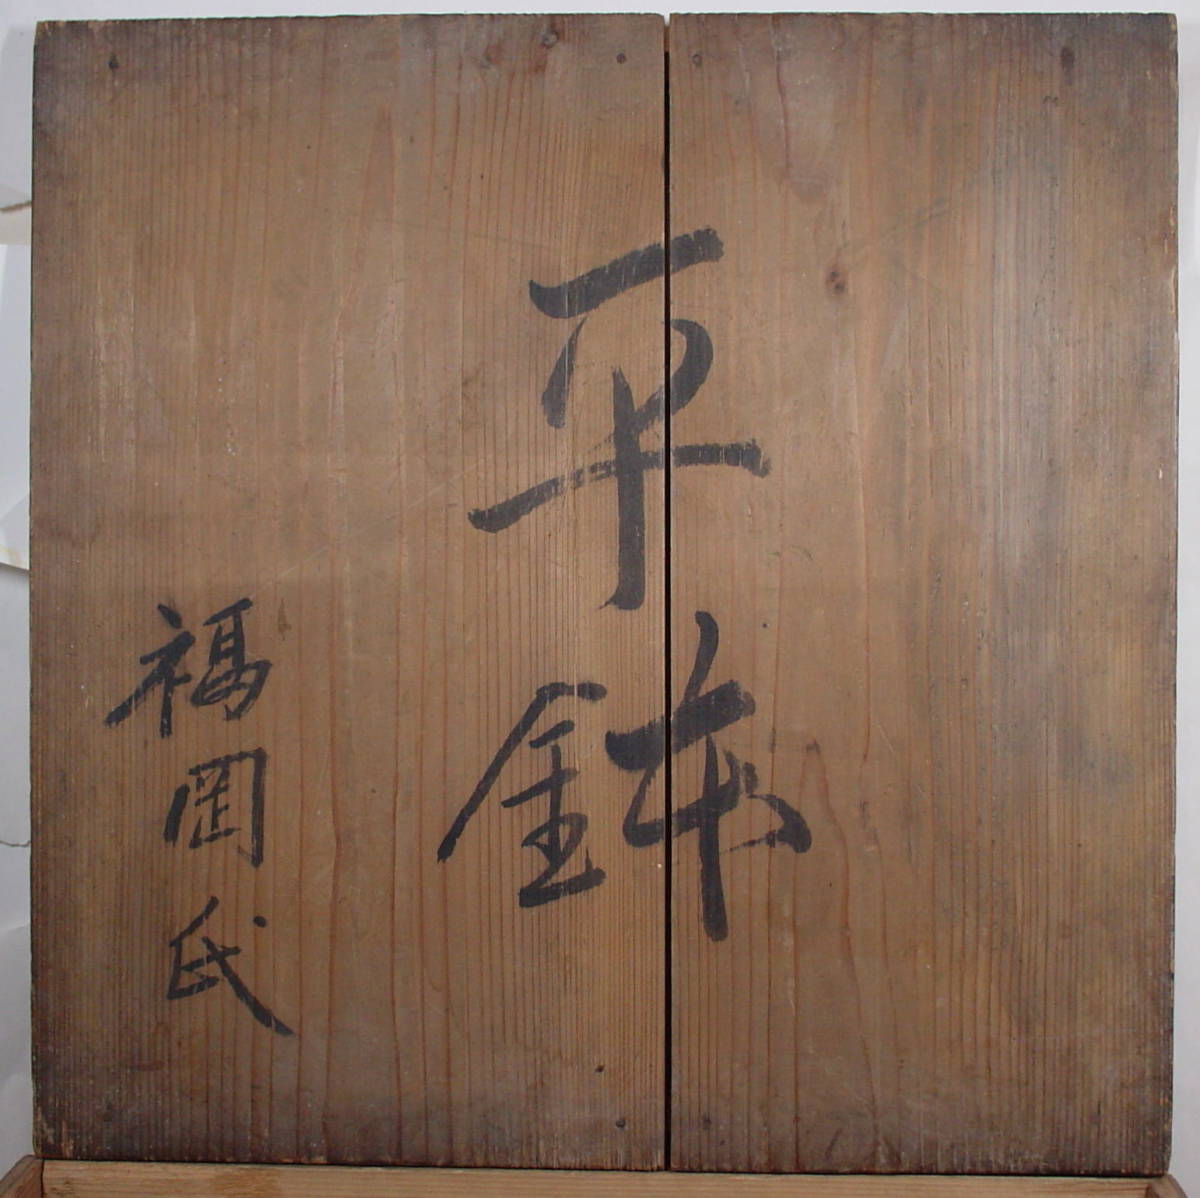 平鉢
福岡氏